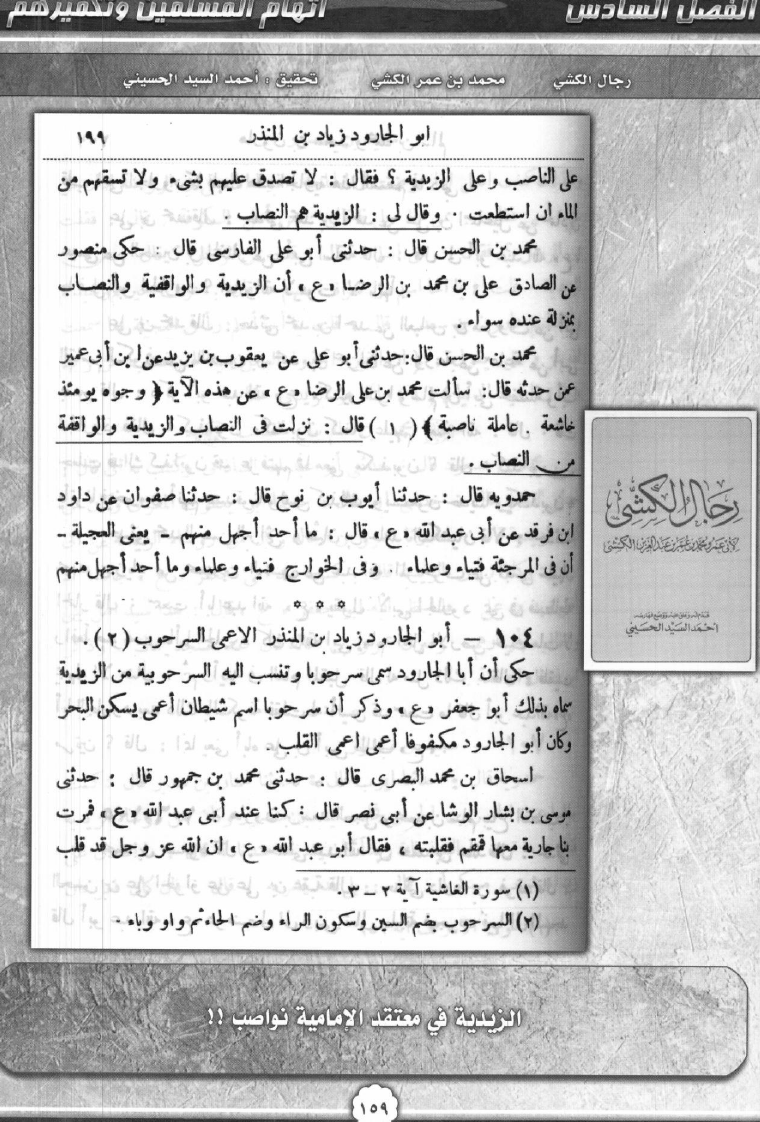 الفصل السادس
اتهام المسلمين وتكفيرهم
رجال الكشي محمد بن عمر الكشي تحقيق : أحمد السيد الحسيني
ابو الجارود زياد بن المنذر ١٩٩
على الناصب وعلى الزيدية ؟ فقال : لا تصدق عليهم بشىء ولا تسقهم من
الماء ان استطعت . وقال لى : الزيدية هم النصاب .
محمد بن الحسن قال : حدثنى أبو على الفارسى قال : حكى منصور
عن الصادق على بن محمد بن الرضا «ع» أن الزيدية والواقفية والنصاب
بمنزلة عنده سواء .
محمد بن الحسن قال : حدثنى أبو على عن يعقوب بن يزيد عن ابن أبى عمير
عمن حدثه قال : سألت محمد بن على الرضا «ع» عن هذه الآية ﴿ وجوه يومئذ
خاشعة . عاملة ناصبة ﴾ (١) قال : نزلت فى النصاب والزيدية والواقفة
من النصاب .
حمدويه قال : حدثنا أيوب بن نوح قال : حدثنا صفوان عن داود
ابن فرقد عن أبى عبد الله «ع» قال : ما أحد أجهل منهم – يعنى العجيلة –
أن فى المرجئة فتياء وعلماء . وفى الخوارج فتياء وعلماء وما أحد أجهل منهم
* * *
١٠٤ – أبو الجارود زياد بن المنذر الاعمى السرحوب (٢) .
حكى أن أبا الجارود سمى سرحوبا وتنسب اليه السرحوبية من الزيدية
سماه بذلك أبو جعفر «ع» وذكر أن سرحوبا اسم شيطان أعمى يسكن البحر
وكان أبو الجارود مكفوفا أعمى اعمى القلب .
اسحاق بن محمد البصرى قال : حدثنى محمد بن جمهور قال : حدثنى
موسى بن بشار الوشا عن أبى نصر قال : كنا عند أبى عبد الله «ع» فمرت
بنا جارية معها قمقم فقلبته ، فقال أبو عبد الله «ع» ان الله عز وجل قد قلب
(١) سورة الغاشية آية ٢ – ٣ .
(٢) السرحوب بضم السين وسكون الراء وضم الحاء ثم واو وباء .
رجال الكشي
لأبي عمرو محمد بن عمر بن عبد العزيز الكشي
احمد السيد الحسيني
الزيدية في معتقد الإمامية نواصب !!
١٥٩